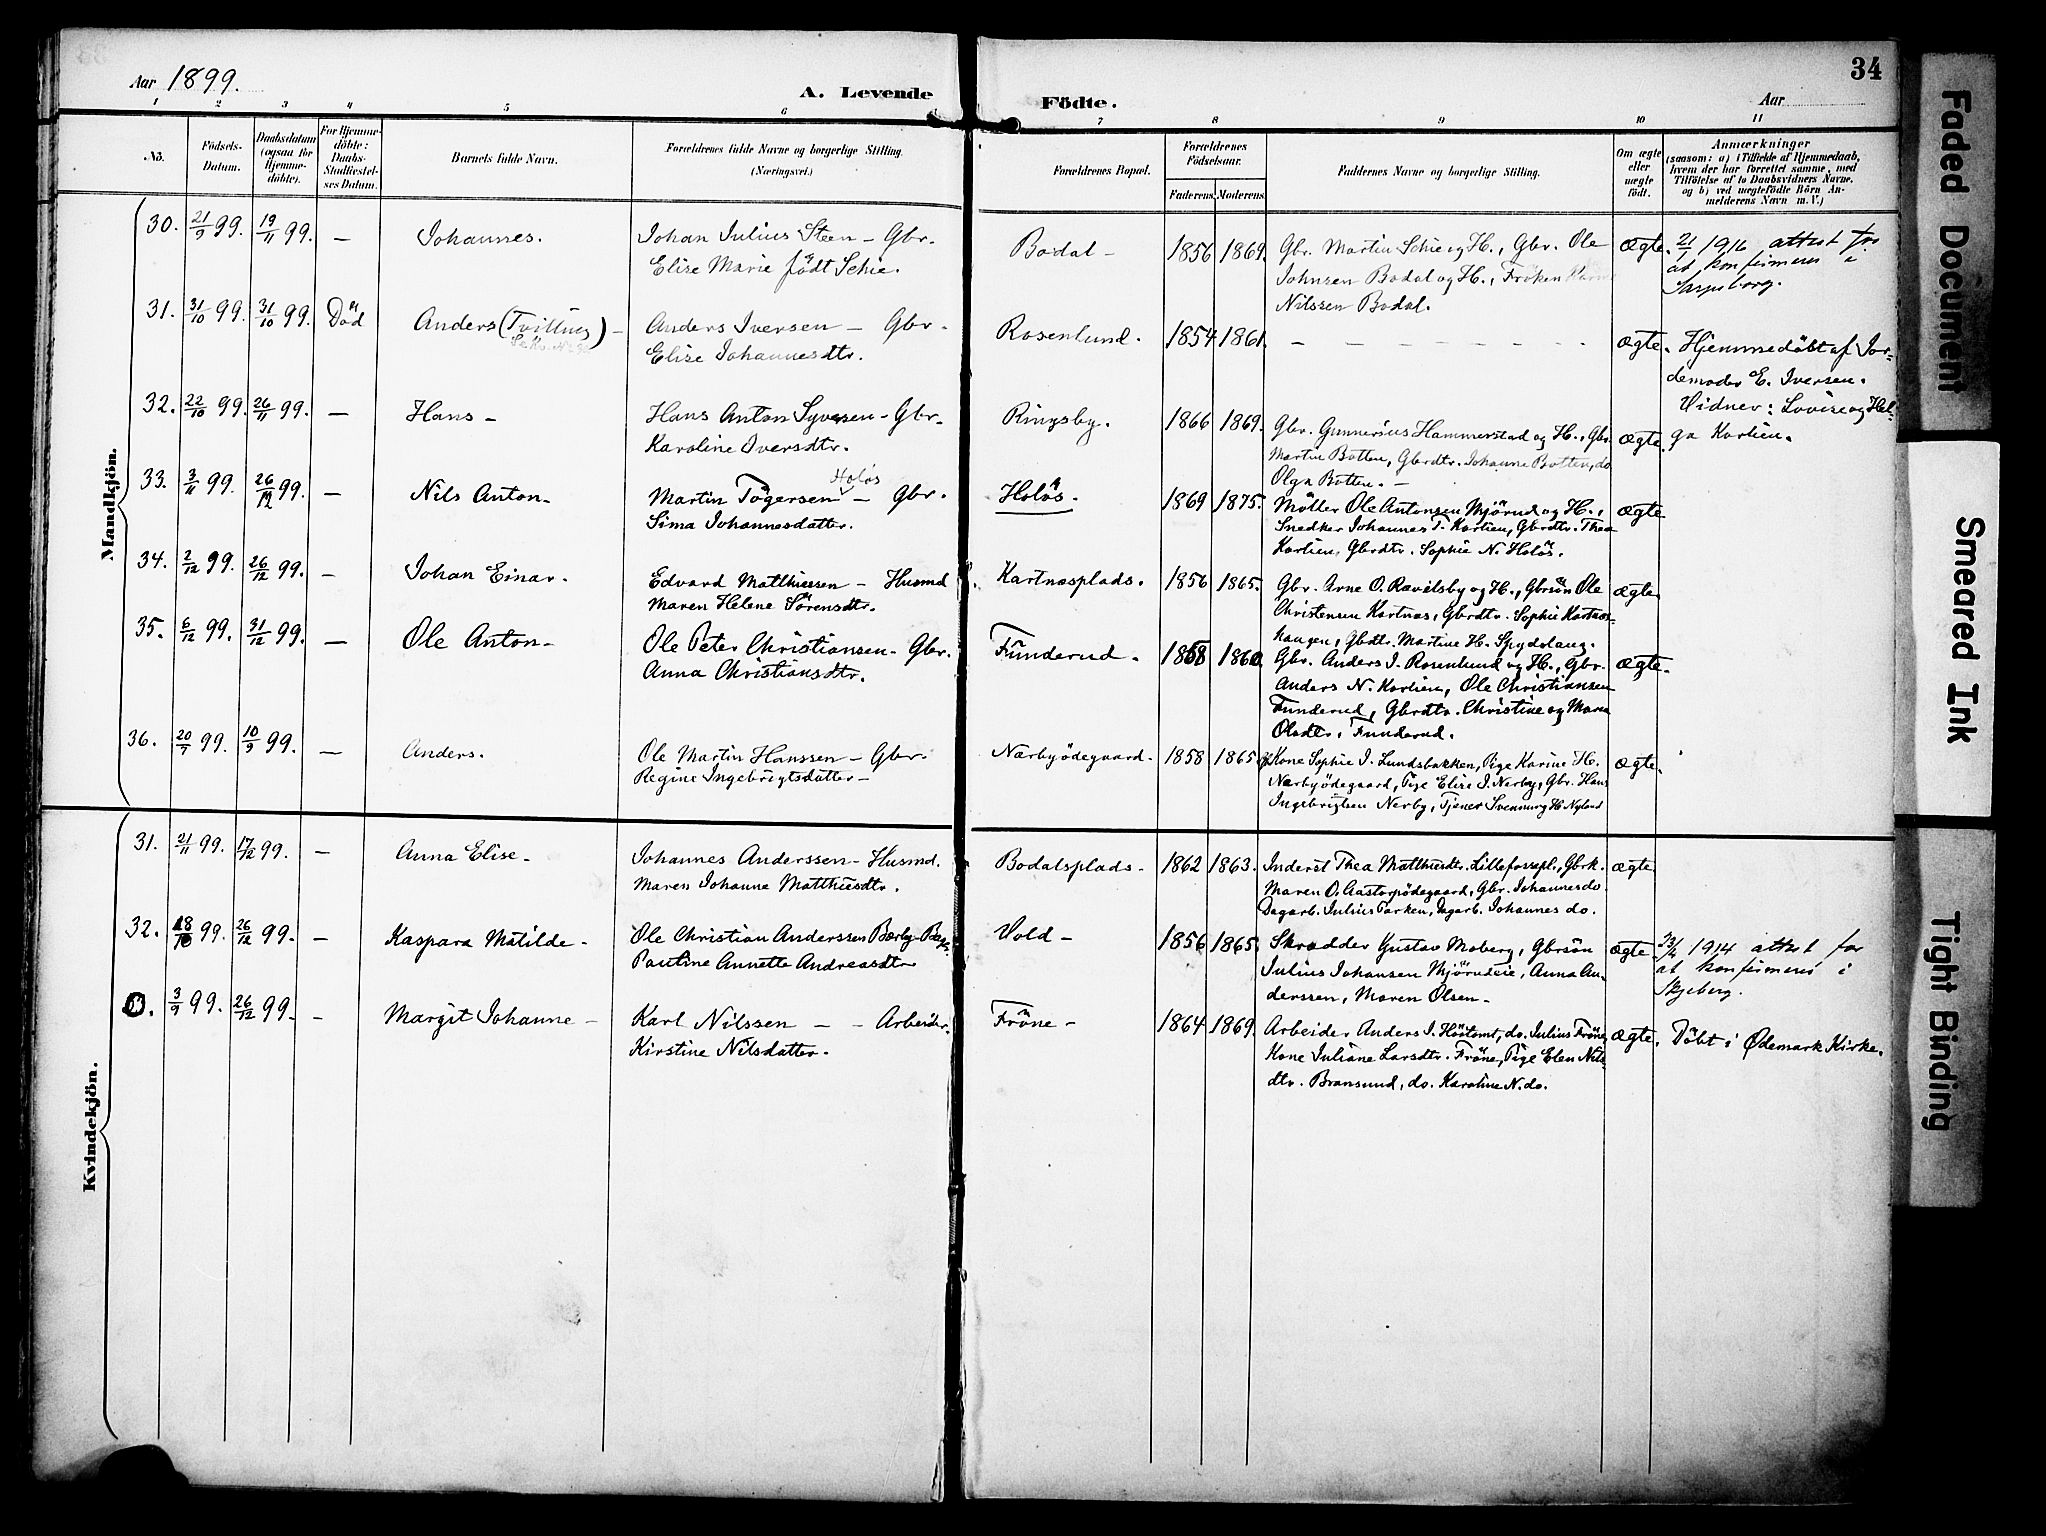 Aar 1899.
A. Levende Födte.
Aar
34
1 2 3 4 5 6 7 8 9 10 11
No.
Födsels-Datum.
Daabsdatum (ogsaa for Hjemme-döbte).
For Hjemme-döbte: Daabs-Stadfæstel-ses Datum.
Barnets fulde Navn.
Forældrenes fulde Navne og borgerlige Stilling. (Næringsvei.)
Forældrenes Bopæl.
Forældrenes Födselsaar.
Faderens. Moderens.
Faddernes Navne og borgerlige Stilling.
Om ægte eller uægte födt.
Anmærkninger
(saasom: a) i Tilfælde af Hjemmedaab,
hvem der har forrettet samme, med
Tilföielse af to Daabsvidners Navne,
og b) ved uægtefödte Börn An-
melderens Navn m. V.)
Mandkjön.
30. 21/9 99. 19/11 99. — Johannes. Johan Julius Steen — Gbr. Bodal — 1856 1869. Gbr. Martin Schie og H., Gbr. Ole ægte. 21/1 1916 attest for
Elise Marie født Schie. Johnsen Bodal og H., Fröken
at konfirmeres i
Nilssen Bodal. Sarpsborg.
31. 31/10 99. 31/10 99. Död Anders (Tvilling) — Anders Iversen — Gbr. Rosenlund. 1854 1861. — — — — — — — ægte. Hjemmedöbt af Jor-
Elise Johannesdtr. demoder E. Iversen.
Vidner: Lovise og Hel-
ga Korlien.
32. 22/10 99. 26/11 99. — Hans — Hans Anton Syversen — Gbr. Ringsby. 1866 1869. Gbr. Gunnerius Hammerstad og H., Gbr. ægte.
Karoline Iversdtr. Martin Botten, Gbrdtr. Johanne Botten, do
Olga Botten. —
33. 3/11 99. 26/12 99. — Nils Anton — Martin Tögersen Holös — Gbr. Holös. 1869 1875. Möller Ole Antonsen Mjörud og H., ægte
Sima Johannesdatter. Snedker Johannes T. Korlien, Gbrdtr. Thea
Korlien, Gbrdtr. Sophie N. Holös.
34. 2/12 99. 26/12 99. — Johan Einar. Edvard Matthiessen — Husmd Kartnesplads. 1856 1865. Gbr. Arne O. Ravilsby og H., Gbrsön Ole ægte.
Maren Helene Sörensdtr. Christensen Kartnes, Gbrdtr. Sophie Kartnes-
haugen, Gbrdtr. Martine H. Spydslaug.
35. 6/12 99. 31/12 99. — Ole Anton — Ole Peter Christiansen — Gbr. Funderud. 1858 1860 Gbr. Anders I. Rosenlund og H., Gbr. ægte.
Anna Christiansdtr. Anders N. Korlien, Ole Christiansen
Funderud, Gbrdtr. Christine og Maren
Olsdtr. Funderud.
36. 20/7 99. 10/9 99. — Anders. Ole Martin Hanssen — Gbr. Nærbyödegaard. 1858 1865. Kone Sophie I. Lundsbakken, Pige Karine H. ægte.
Regine Ingebrigtsdatter — Nærbyödegaard, Pige Elise I. Nerby, Gbr. Hans
Ingebrigtsen Nerby, Tjener Svennung H. Nyland
Kvindekjön.
31. 21/11 99. 17/12 99. — Anna Elise. Johannes Anderssen — Husmd. Bodalsplads. 1862 1863. Inderst Thea Matthisdtr. Lilleforspl., Gbrk. ægte
Maren Johanne Matthisdtr. Maren O. Aastorpödegaard, Gbr. Johannes do.
Dagarb. Julius Tarken, Dagarb. Johannes do.
32. 18/10 99. 26/12 99. — Kaspara Matilde — Ole Christian Anderssen Berby Vold — 1856 1865. Skrædder Gustav Moberg, Gbrsön ægte 1914 attest for
Pauline Annette Andreasdtr Julius Johansen Mjörudeie, Anna An- at konfirmeres i
derssen, Maren Olsen. Skjeberg.
3/9 99. 26/12 99. — Margit Johanne — Karl Nilssen — — Arbeider. Fröne — 1864 1869. Arbeider Anders I. Höitomt, do. Julius Fröne, ægte. Döbt i Ødemark Kirke.
Kirstine Nilsdatter. Kone Juliane Larsdtr. Fröne, Pige Elen Nils-
dtr. Bransund, do. Karoline N. do.
Faded Document
Smeared Ink
Tight Binding